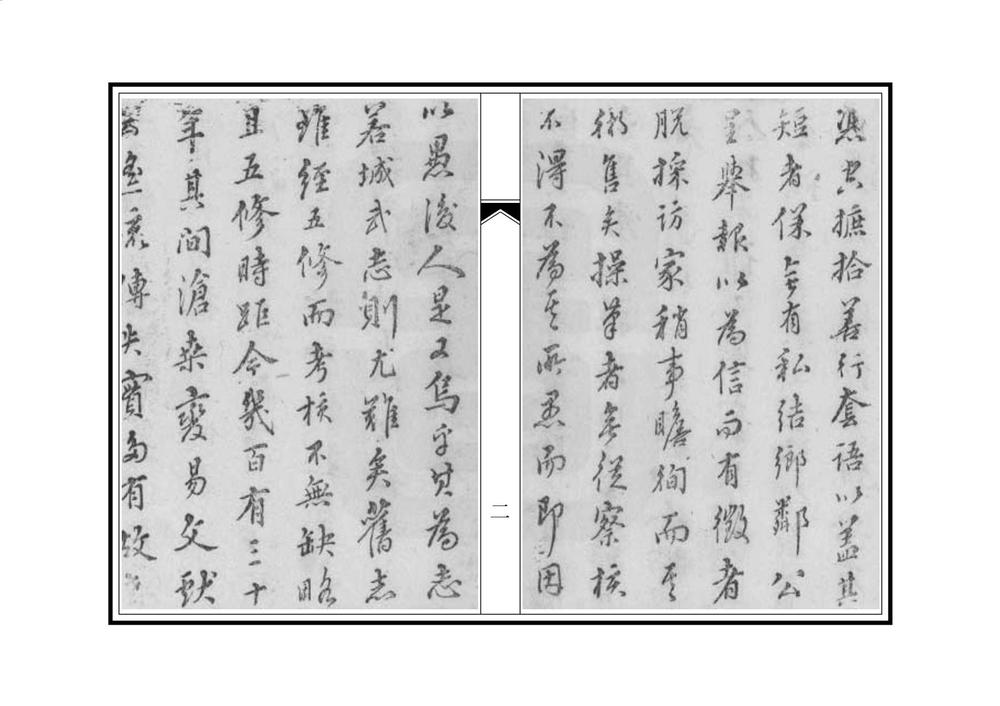 憑空摭拾善行套語以蓋其
短者保無有私結鄉鄰公
呈舉報以為信而有徵者
脫採訪家稍事瞻徇而其
術售矣操筆者無從察核
不得不為其所愚而即因
二
以愚後人是又烏乎其為志
若城武志則尤難矣舊志
雖經五修而考核不無缺略
且五修時距今幾百有三十
年其間滄桑變易文獻
無傳失實多有